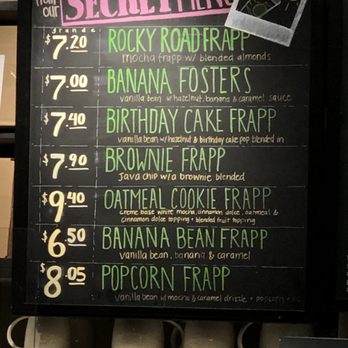 our
SECRET
grande
$7.20 ROCKY ROAD FRAPP
mocha frapp w/ blended almonds
$7.00 BANANA FOSTERS
vanilla bean w/ hazelnut, banana & caramel sauce
$7.40 BIRTHDAY CAKE FRAPP
vanilla bean w/ hazelnut & birthday cake pop blended in
$7.90 BROWNIE FRAPP
Java chip w/ a brownie blended
$9.40 OATMEAL COOKIE FRAPP
creme base white mocha, cinnamon dolce, oatmeal &
cinnamon dolce topping + blended fruit topping
$6.50 BANANA BEAN FRAPP
vanilla bean, banana & caramel
$8.05 POPCORN FRAPP
vanilla bean w/ mocha & caramel drizzle + popcorn